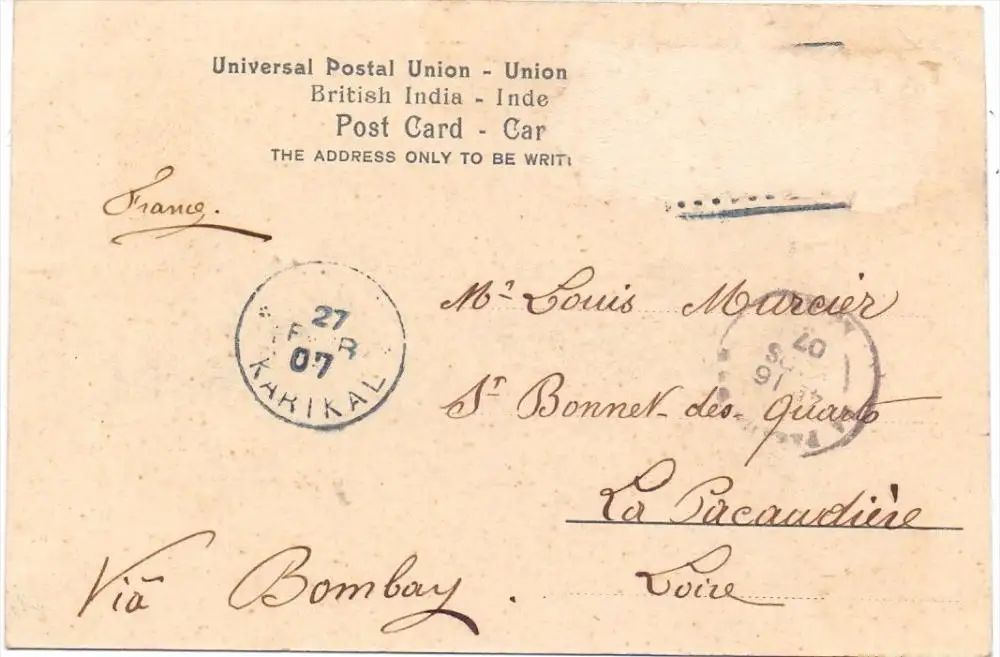 Universal Postal Union - Union
British India - Inde
Post Card - Car
THE ADDRESS ONLY TO BE WRIT
France.
Mr Louis Murcier
St Bonnet-des-Quarts
La Pacaudière
Loire
Via Bombay.
27
07
KARIKAL
16
07